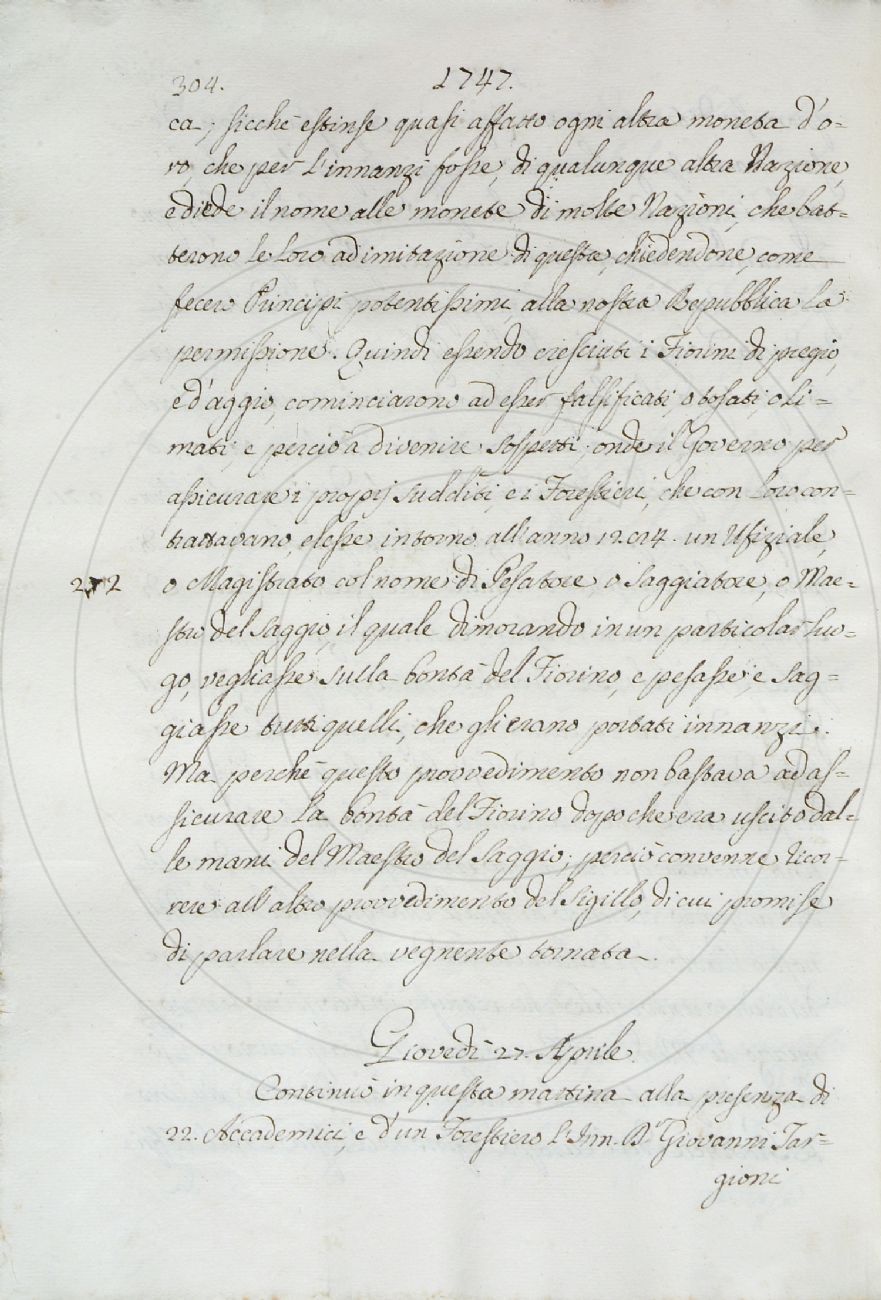 304. 1747.
ca; sicchè estinse quasi affatto ogni altra moneta d'o-
ro, che per l'innanzi fosse, di qualunque altra Nazione,
e diede il nome alle monete di molte Nazioni, che bat-
terono le loro ad imitazione di questa, chiedendone, come
fecero Principi potentissimi alla nostra Repubblica la
permissione. Quindi essendo cresciuti i Fiorini di pregio,
e d'aggio, cominciarono ad esser falsificati, o tosati o li-
mati, e perciò a divenire sospetti; onde il Governo per
assicurare i proprj sudditi, e i Forestieri, che con loro con-
trattavano, elesse intorno all'anno un Ufiziale,
2 2 o Magistrato col nome di Pesatore, o Saggiatore, o Mae-
stro del Saggio, il quale dimorando in un particolar luo-
go, vegliasse sulla bontà del Fiorino, e pesasse, e sag-
giasse tutti quelli, che gli erano portati innanzi.
Ma perchè questo provvedimento non bastava ad as-
sicurare la bontà del Fiorino dopo che era uscito dal-
le mani del Maestro del Saggio; perciò convenne ricor-
rere all'altro provvedimento del Sigillo, di cui promise
di parlare nella vegnente tornata.
Giovedì 27. Aprile.
Continuò in questa mattina alla presenza di
22. Accademici, e d'un Forestiero l'Inn. Dr Giovanni Tar-
gioni